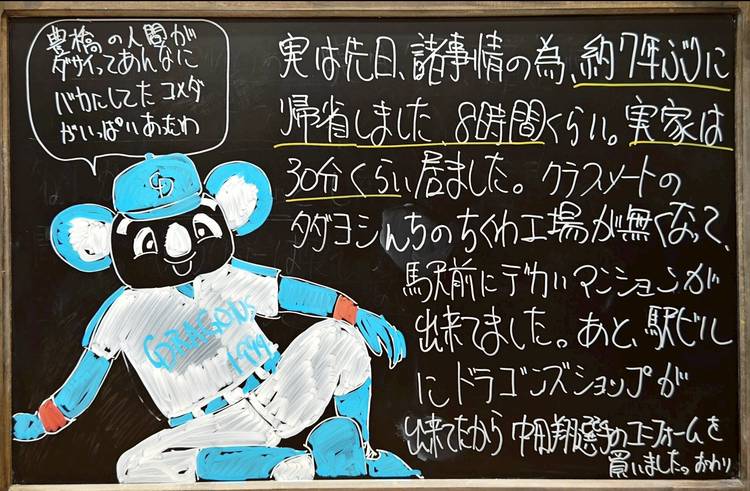 豊橋の人間が
ダサイってあんなに
バカにしてたコメダ
がいっぱいあったわ
実は先日、諸事情の為、約7年ぶりに
帰省しました、8時間くらい。実家は
30分くらい居ました。クラスメートの
タダヨシんちのちくわ工場が無くなって、
馬駅前にデカいマンションが
出来てました。あと、駅ビル
にドラゴンズショップが
出来てたから 中田翔選手のユニフォームを
買いました。おわり
CD
DRAGONS
1-999